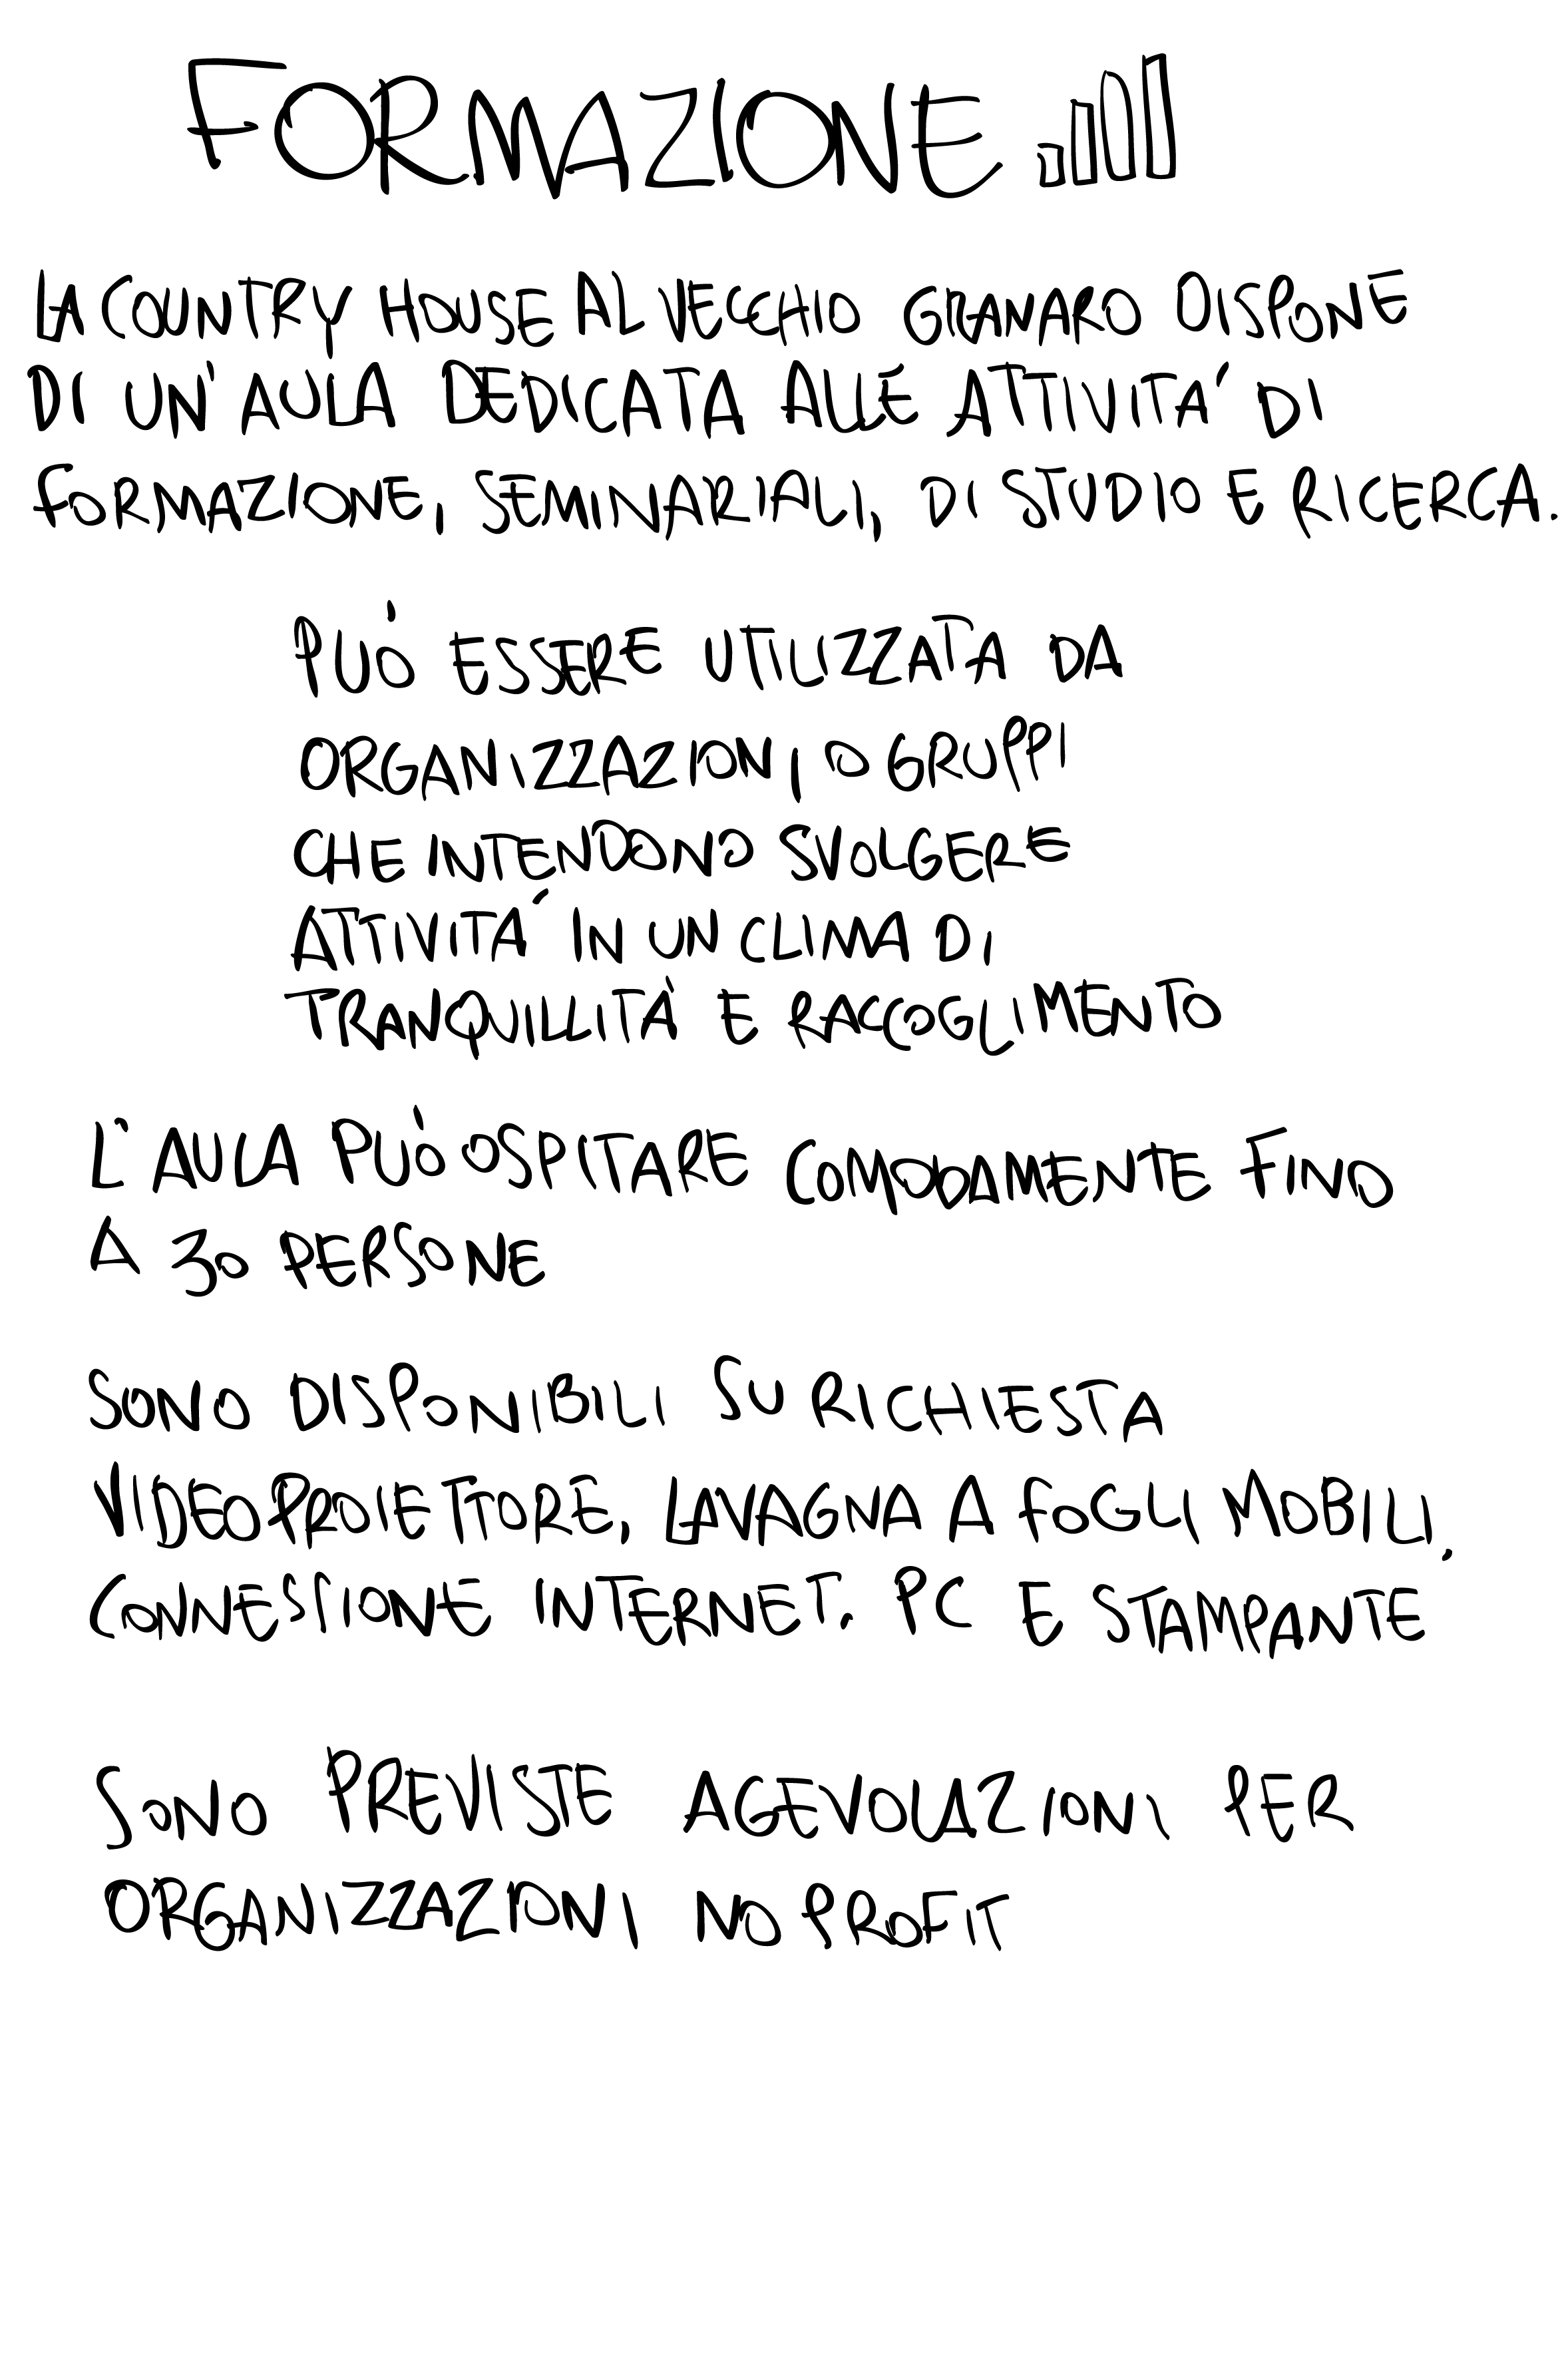 FORMAZIONE
LA COUNTRY HOUSE AL VECCHIO GRANARO DISPONE
DI UN'AULA DEDICATA ALLE ATTIVITA' DI
FORMAZIONE, SEMINARIALI, DI STUDIO E RICERCA.
PUÒ ESSERE UTILIZZATA DA
ORGANIZZAZIONI O GRUPPI
CHE INTENDONO SVOLGERE
ATTIVITA' IN UN CLIMA DI
TRANQUILLITÀ E RACCOGLIMENTO
L'AULA PUÒ OSPITARE COMODAMENTE FINO
A 30 PERSONE
SONO DISPONIBILI SU RICHIESTA
VIDEOPROIETTORE, LAVAGNA A FOGLI MOBILI,
CONNESSIONE INTERNET, PC E STAMPANTE
SONO PREVISTE AGEVOLAZIONI PER
ORGANIZZAZIONI NO PROFIT